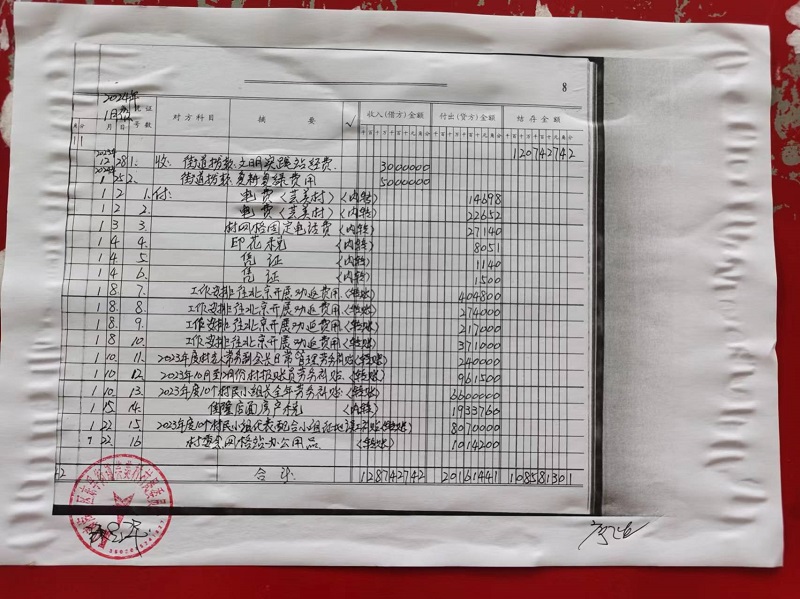 8
2024年
1月份
月 日 号数 对方科目 摘 要 √ 收入(借方)金额 付出(贷方)金额 结存金额
120742742
2023年
12 28 1. 收: 街道拨款文明实践站经费 3000000
2024年
1 25 2. 街道拨款 费用 5000000
1 2 1. 付: 电费(芸美村)(内转) 14698
1 2 2. 电费(芸美村)(内转) 22652
1 3 3. 村网格固定电话费(内转) 27140
1 4 4. 印花税(内转) 8051
1 4 5. 凭证(内转) 1140
1 4 6. 凭证(内转) 1500
1 8 7. 工作安排往北京开展劝返费用(转账) 404800
1 8. 8. 工作安排往北京开展劝返费用(转账) 274000
1 8 9. 工作安排往北京开展劝返费用(转账) 217000
1 8 10. 工作安排往北京开展劝返费用(转账) 371000
1 10. 11. 2023年度村老人常务副会长日常管理劳务补贴(转账) 240000
1 10 12. 2023年10月至12月份村报账员劳务补贴(转账) 961500
1 10. 13. 2023年度10个村民小组长全年劳务补贴(转账) 6600000
1 15 14. 街隆店面房产税(内转) 1933760
1 22 15 2023年度10个村民小组代表配合小组 (转账) 8070000
22. 16 村委会网格站办公用品(转账) 1014200
合计 128742742 20161441 108581301